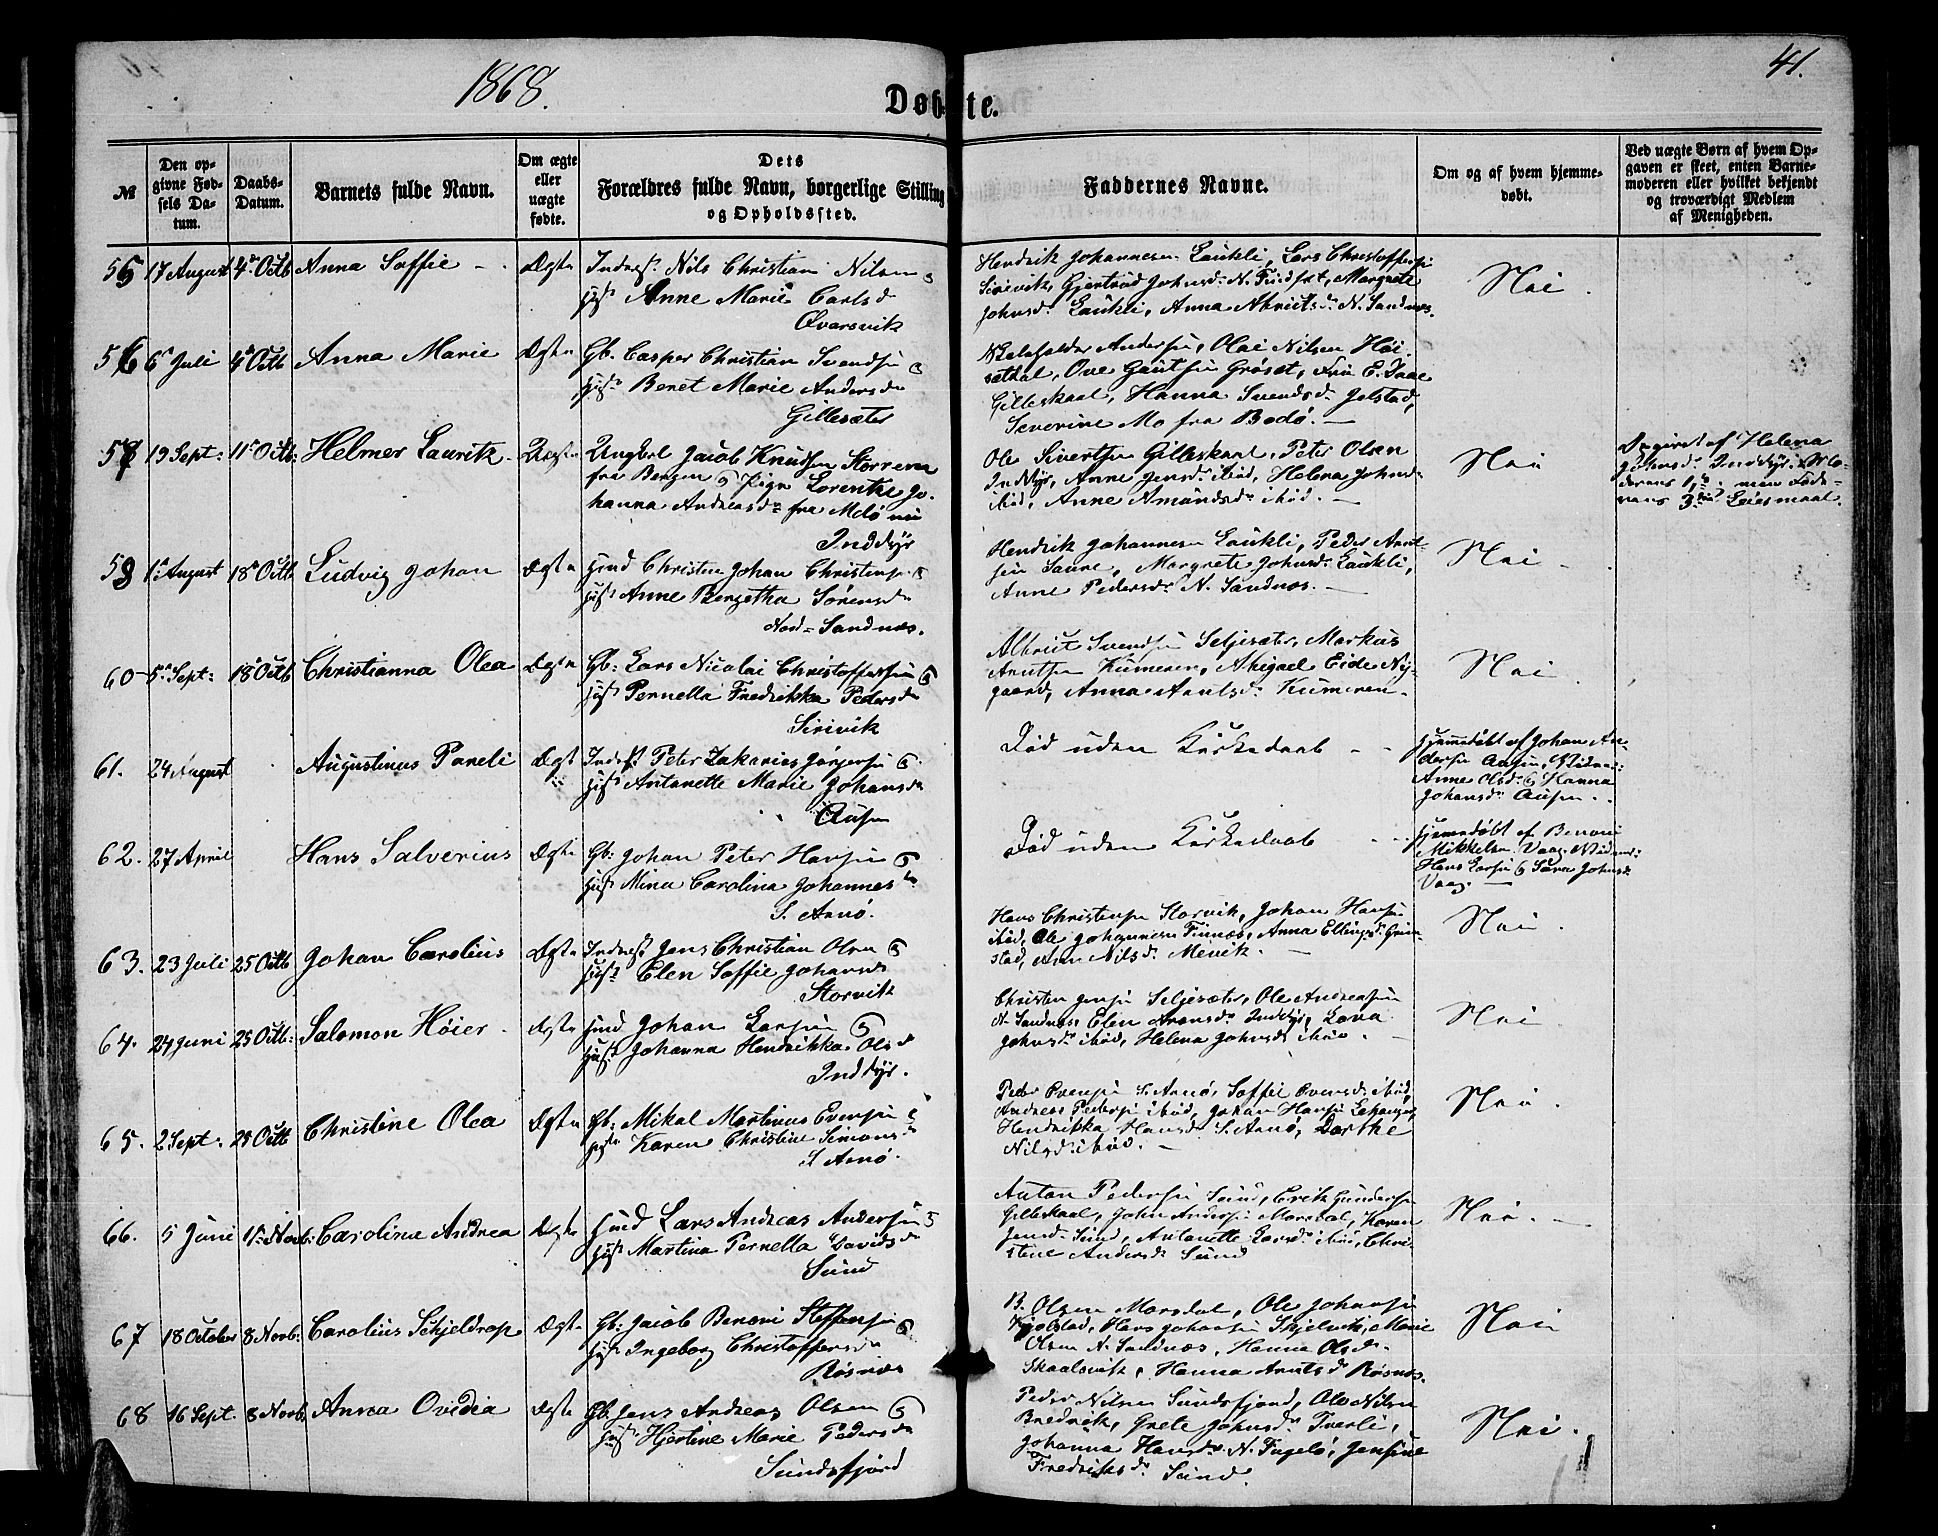 1868.
41.
Døbte.
№
Den opgivne Fødsels Datum.
Daabs-Datum.
Barnets fulde Navn.
Om ægte eller uægte fødte.
Dets Forældres fulde Navn, borgerlige Stilling og Opholdssted.
Faddernes Navne.
Om og af hvem hjemmedøbt.
Ved uægte Børn af hvem Opgaven er skeet, enten Barnemoderen eller hvilket bekjendt og troværdigt Medlem af Menigheden.
55 17 August 4de Octb Anna Soffie Ægte Inderst. Nils Christian Nilsen
Anne Marie Carlsd
Qvarsvik
Hendrik Johannesen Laukli, Lars Christoffersen
Sirivik, Gjertrud Johnsd: N. Fuglset, Margrete
Johnsd: Laukli, Anna Albrigtsd: N. Sandnæs.
Nei
56 6 Juli 4 Octb Anna Marie Ægte Gb. Casper Christian Svendsen
Beret Marie Andersd
Gillesæter
Andersen, Olai Nilsen Høi-
sethal, Ove Gautsen Grøset, Fru E. Daae
Gilleskaal, Hanna Svendsd: Jolstad,
Severine Mo fra Bodø. —
57 19 Sept: 11 Octb: Helmer Lauritz Uægte Ungkarl Jacob Knudsen Storrem
fra Bergen og Pige Lorentze Jo-
hanna Andreasd: fra Melø nu
Inddyr
Ole Sivertsen Gilleskaal, Peter Olsen
Inddyr, Anne Jensd: ibid, Helena Johnsd:
ibid, Anne Amundsd: ibid. —
Nei
Opgivet af Helena
Johnsd: Inddyr. Mo-
derens 1ste, men Fade-
rens 3die Leiermaal.
58 1 August 18 Octb Ludvig Johan Ægte Husmd Christen Johan Christensen
Anne Bergetha Sørensd
Nord-Sandnæs.
Hendrik Johannesen Laukli, Peder Arnt-
sen Saure, Margrete Johnsd: Laukli,
Anne Pedersd: N. Sandnæs. —
Nei
60 5 Sept: 18 Octb Christianna Olea Ægte Gb: Lars Nicolai Christoffersen
Pernella Fredrikka Pedersd
Sirivik
Albrigt Svendsen Seljesæter, Markus
Arntsen Kumeren, Abegael Eide Ny-
gaard, Anna Arntsd: Kumeren.
Nei
61. 24 August Augustinus Pareli Ægte Inderst Peter Zakarias Jørgensen
Antonette Marie Johansd
Ausen
Død uden Kirkedaab
Hjemmedøbt af Johan An-
dersen Ausen, Vidner:
Anne Olsd: og Hanna
Johansd: Ausen.
62. 27 April Hans Salverius Ægte Gb: Johan Peter Hansen
Mina Carolina Johannesd
S. Arnø.
Død uden Kirkedaab
Hjemmedøbt af Benoni
Mikkelsen Vaag. Vidner:
Hans Larsen og Sara Johnsd:
Vaag. —
63. 23 Juli 25 Octb Johan Carolius Ægte Inderst Jens Christian Olsen
Elen Soffie Johansd
Storvik
Hans Christensen Storvik, Johan Hansen
ibid, Ole Johannesen Finnæs, Anna Ellingsd: Grim-
stad, Ane Nilsd: Mevik. —
Nei.
64. 24 Juni 25 Octb: Salomon Høier Ægte Husmd Johan Larsen
Johanna Hendrikka Olsd
Inddyr.
Christen Jensen Seljesæter, Ole Andreasen
N. Sandnæs, Elen Aronsd: Inddyr, Lova
Johnsd: ibid, Helena Johnsd: ibid. —
Nei
65. 2 Sept: 25 Octb Christine Olea Ægte Gb: Mikal Martinus Evensen
Karen Christine Simonsd
S. Arnø.
Peder Evensen S. Arnø, Soffie Evensd: ibid,
Andreas Pedersen ibid, Johan Hansen
Hendrikka Hansd: S. Arnø, Dorthe
Nilsd: ibid. —
Nei.
66. 5 Juni 1ste Novb: Caroline Andrea Ægte Husmd Lars Andreas Andersen
Martina Pernella Davidsd
Sund
Anton Pedersen Sund, Erik Gundersen
Gilleskaal, John Andersen Morsdal, Karen
Jensd: Sund, Antonette Larsd: ibid, Chri-
stene Andersd: Sund
Nei. —
67 18 October 8 Novb: Carolius Schjeldrop Ægte Gb: Jacob Benoni Steffensen
Ingeborg Christoffersd
Røsnæs
B. Olsen Morsdal, Ole Johansen
Kjolstad, Hans Johansen Skjelvik, Marie
Olsen N. Sandnæs, Hanne Olsd:
Skaalsvik, Hanna Arntsd: Røsnæs.
Nei
68 16 Sept. 8 Novb. Anna Ovidia Ægte Gb. Jens Andreas Olsen
Hjertine Marie Pedersd
Sundsfjord
Peder Nilsen Sundsfjord, Ole Nilsen
Bredvik, Grete Johnsd: Tverli,
Johanna Hansd: N. Fugelø, Jensine
Fredriksd: Sund.
Nei.